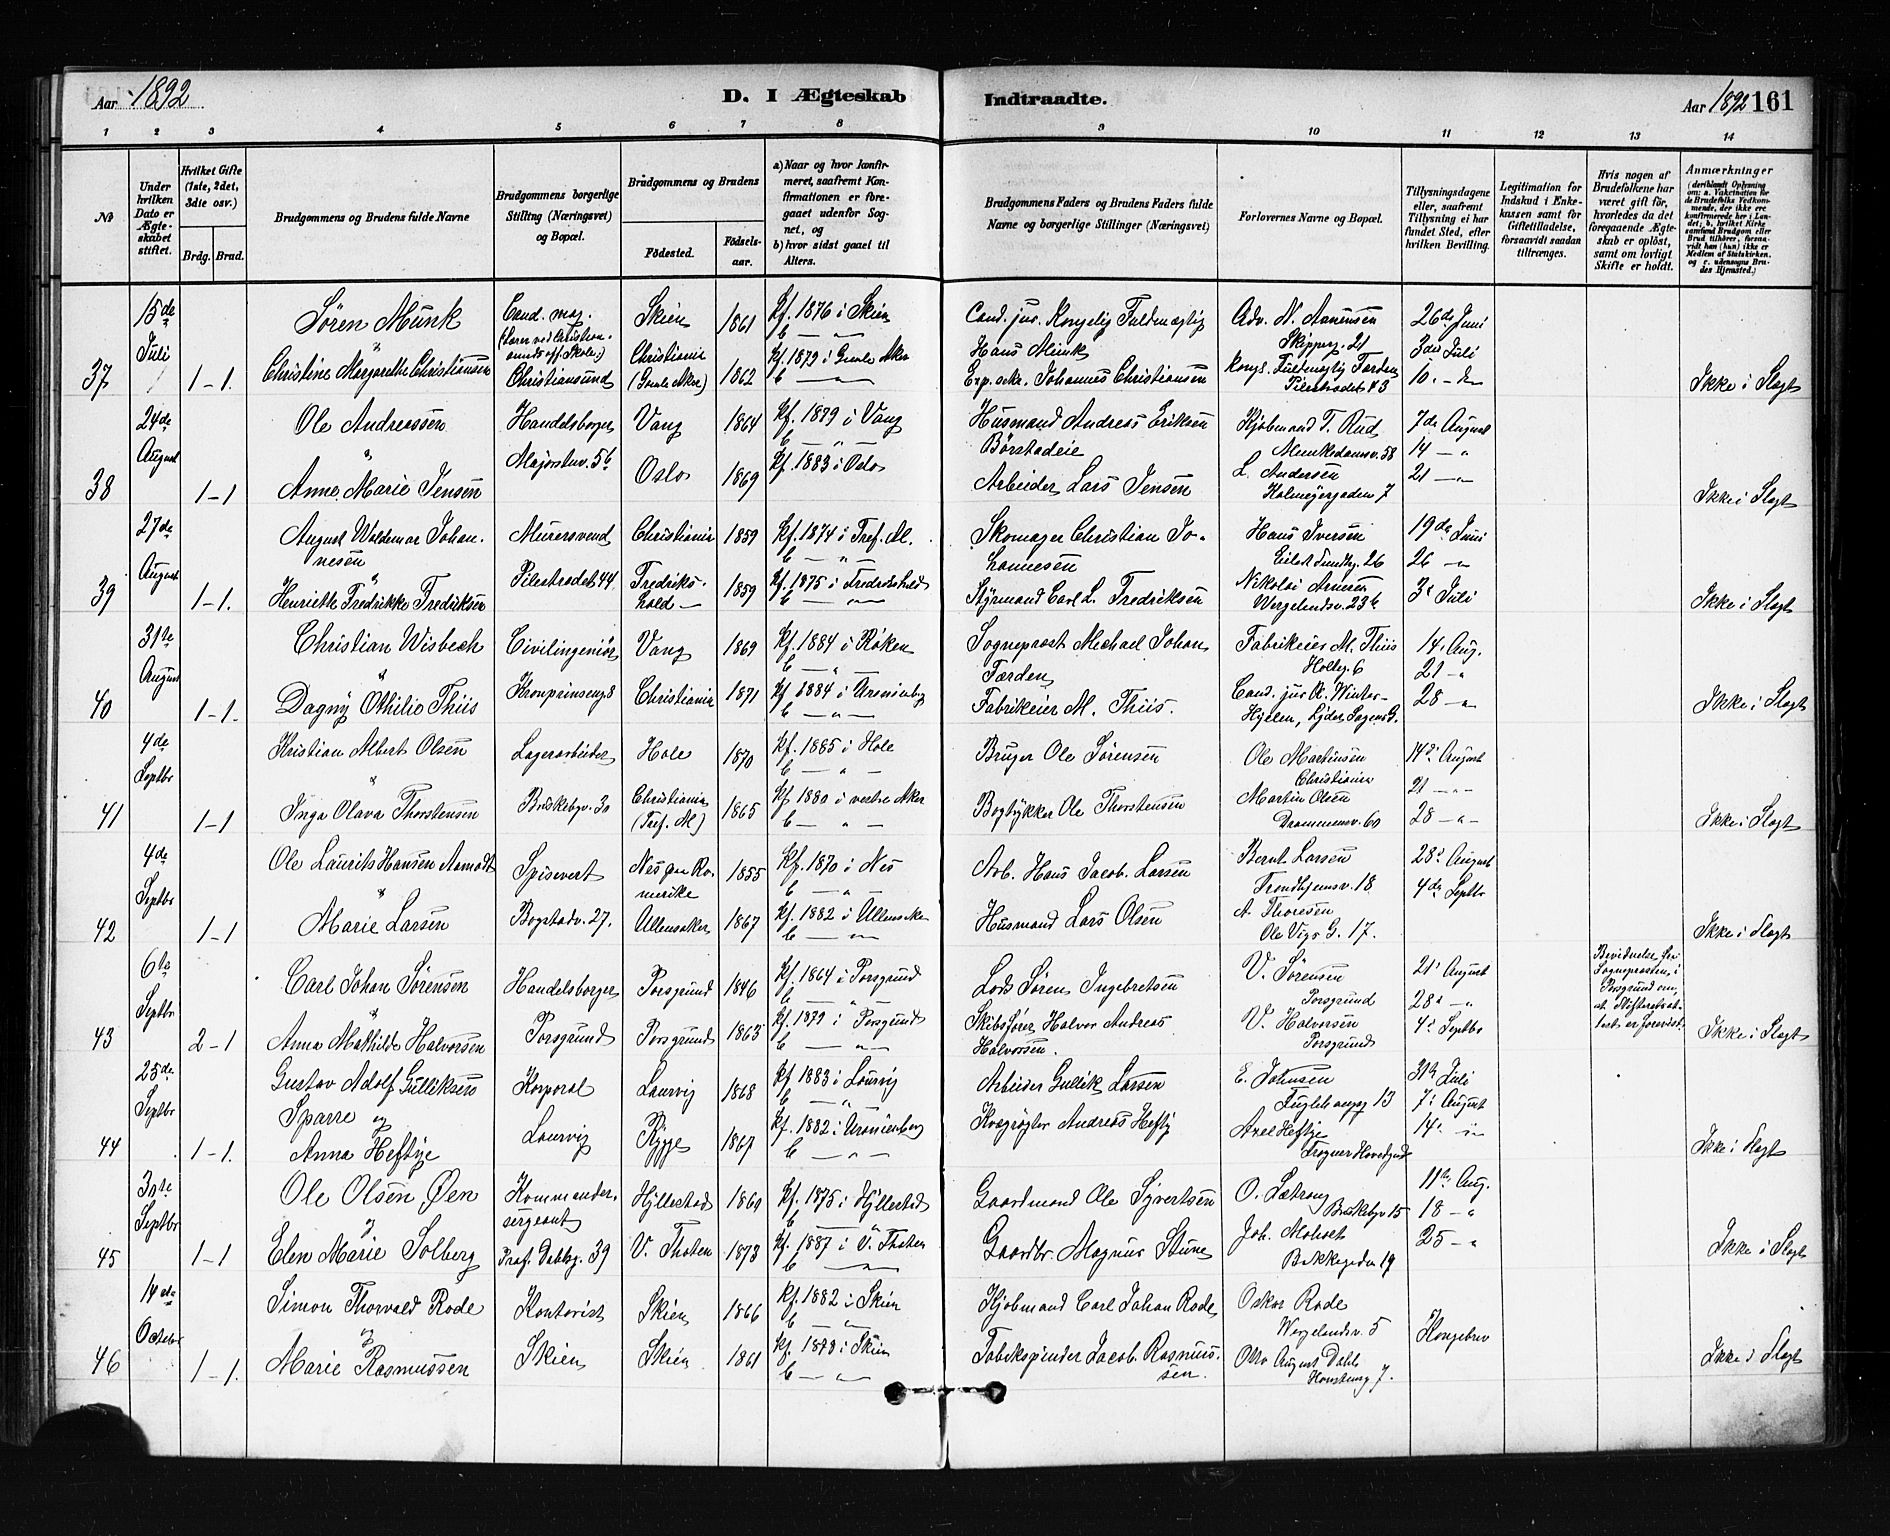 Aar 1892
D. I Ægteskab Indtraadte.
Aar 1892 161
1 2 3 4 5 6 7 8 9 10 11 12 13 14
No
Under hvilken Dato er Ægteskabet stiftet.
Hvilket Gifte (1ste, 2det, 3die osv.)
Brdg. Brud.
Brudgommens og Brudens fulde Navne
Brudgommens borgerlige Stilling (Næringsvei) og Bopæl.
Brudgommens og Brudens
Fødested.
Fødselsaar.
a) Naar og hvor konfirmeret, saafremt Konfirmationen er foregaaet udenfor Sognet, og
b) hvor sidst gaaet til Alters.
Brudgommens Faders og Brudens Faders fulde Navne og borgerlige Stillinger (Næringsvei)
Forlovernes Navne og Bopæl.
Tillysningsdagene eller, saafremt Tillysning ei har fundet Sted, efter hvilken Bevilling.
Legitimation for Indskud i Enkekassen samt for Giftetilladelse, forsaavidt saadan tiltrænges.
Hvis nogen af Brudefolkene har været gift før, hvorledes da det foregaaende Ægteskab er opløst, samt om lovligt Skifte er holdt.
Anmærkninger
(deriblandt Oplysning om: a. Vakcination for de Brudefolks Vedkommende, der ikke ere konfirmerede her i Landet; b. hvilket Kirkesamfund Brudgom eller Brud tilhører, forsaavidt han (hun) ikke er Medlem af Statskirken. og c. udensogns Brudes Hjemsted.)
37 15de Juli 1-1.
Søren Munk & Christine Margarethe Christiansen
Cand. mag. (Lærer ved Christiansunds off. Skole) Christiansund
Skien 1861 Kf. 1876 i Skien
Christiania (Gamle Aker) 1862 Kf. 1879 i Gamle Aker
Cand. jur. Kongelig Fuldmægtig Hans Munk
Exp. sekr. Johannes Christiansen
Adv. N. Aanensen Skipperg. 21
Kongl. Fuldmægtig Færden Pilestrædet 43
26de Juni 3die Juli 10. - de
Ikke i Slægt
38 24de August 1-1
Ole Andreassen & Anne Marie Jensen
Handelsborger Majorstuv. 5b
Vang 1864 Kf. 1879 i Vang
Oslo 1869 Kf. 1883 i Oslo
Husmand Andreas Eriksen Børstadeie
Arbeider Lars Jensen
Kjøbmand T. Rud Munkedamsv. 58
L. Andersen Holmeyergaden 7
7de August 14 - " 21 - "
Ikke i Slægt
39 27de August 1-1.
August Waldemar Johannesen & Henriette Fredrikke Fredriksen
Murersvend Pilestrædet 44
Christiania 1859 Kf. 1874 i Tref. M.
Fredrikshald - 1859 Kf. 1875 i Fredrikshald
Skomager Christian Johannesen
Styrmand Carl L. Fredriksen
Hans Iversen Eilert Sundtg. 26
Nikolai Arnesen Wergelandsv. 23b
19de Juni 26 - " 3die Juli
Ikke i Slægt
40 31te August 1-1.
Christian Wisbech & Dagny Othilie Thiis
Civilingeniør Kronprinsensg. 8
Vang 1869 Kf. 1884 i Røken
Christiania 1871 Kf. 1884 i Uranienborg
Sogneprost Michael Johan Færden
Fabrikeier M. Thiis.
Fabrikeier M. Thiis Holbg. 6
Cand. jur. R. Winter-Hjelm, Lyder Sagens G.
14. Aug. 21 - " 28 - "
Ikke i Slægt
41 4de Septbr 1-1
Kristian Albert Olsen & Inga Olava Thorstensen
Lagerarbeider Briskebyv. 30
Hole 1870 Kf. 1885 i Hole
Christiania (Tref. M) 1865 Kf 1880 i vestre Aker
Bruger Ole Sørensen
Bogtrykker Ole Thorstensen
Ole Martinsen Christiania
Martin Olsen Drammensv. 60
14de August 21 - " 28 - "
Ikke i Slægt
42 4de Septbr 1-1
Ole Laurits Hansen Aamodt & Marie Larsen
Spisevert Bogstadv. 27.
Nes paa Romerike 1855 Kf. 1870 i Nes
Ullensaker 1867 Kf. 1882 i Ullensaker
Arb. Hans Jacob Larsen
Husmand Lars Olsen
Bernt Larsen Trondhjemsv. 18
A. Thoresen Ole Vigs G. 17.
28de August 4de Septbr
Ikke i Slægt
43 6te Septbr 2-1
Carl Johan Sørensen & Anna Mathilde Halvorsen
Handelsborger Porsgrund
Porsgrund 1846 Kf. 1864 i Porsgrund
Porsgrund 1863 Kf. 1879 i Porsgrund
Lods Søren Ingebretsen
Skibsfører Halvor Andreas Halvorsen.
V. Sørensen Porsgrund
V. Halvorsen Porsgrund
21de August 28de - " 4de Septbr
Bevidnelse fra Sogneprosten i Porsgrund om, at Skifteattest er forevist.
Ikke i Slægt
44 25de Septbr 1-1.
Gustav Adolf Gulliksen Sparre og Anna Heftye
Korporal Laurvig
Laurvig 1868 Kf. 1883 i Laurvig
Rygge 1867 Kf. 1882 i Uranienborg
Arbeider Gullik Larsen
Kvægrøgter Andreas Hefty
E. Johnsen Fuglehaugg 13
Axel Heftye Frogner Hovedgaard
31te Juli 7de August 14de - "
Ikke i Slægt
45 30te Septbr 1-1
Ole Olsen Øen og Elen Marie Solberg
Kommandersergeant Prof. Dahlsg. 39
Hyllestad 1860 Kf. 1875 i Hyllestad
V. Thoten 1873 Kf. 1887 i V. Thoten
Gaardmand Ole Syvertsen
Gaardbr. Magnus Stune
O. Sætrang Briskebyv 15
Joh. Moholt Bakkegaden 19
11te Aug. 18 - " 25 - "
Ikke i Slægt
46 14de October 1-1.
Simon Thorvald Rode og Marie Rasmussen
Kontorist Skien
Skien 1866 Kf. 1882 i Skien
Skien 1861 Kf. 1878 i Skien
Kjøbmand Carl Johan Rode
Tobakspinder Jacob Rasmussen.
Oskar Rode Wergelandsv. 5
Otto August Dahl 7.
Kongebrev
Ikke i Slægt